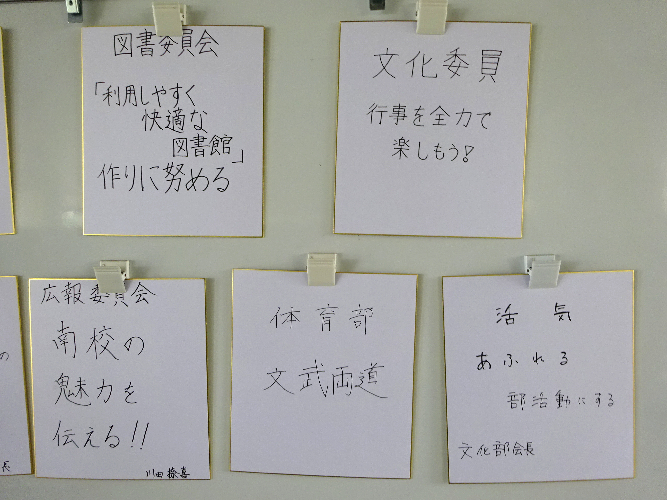 図書委員会
「利用しやすく
快適な
図書館」
作りに努める
文化委員
行事を全力で
楽しもう!
広報委員会
南校の
魅力を
伝える!!
体育部
文武両道
活気
あふれる
部活動にする
文化部会長
の
長